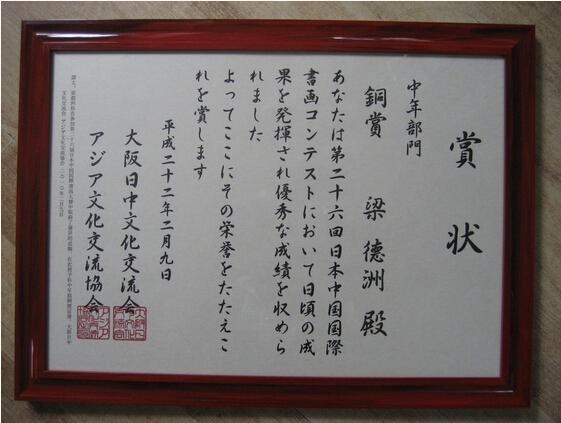 賞状
中年部門
銅賞 梁德洲殿
あなたは第二十六回日本中国国際
書画コンテストにおいて日頃の成
果を発揮され優秀な成績を収めら
れました
よってここにその栄誉をたたえこ
れを賞します
平成二十二年二月九日
大阪日中文化交流会
アジア文化交流協会